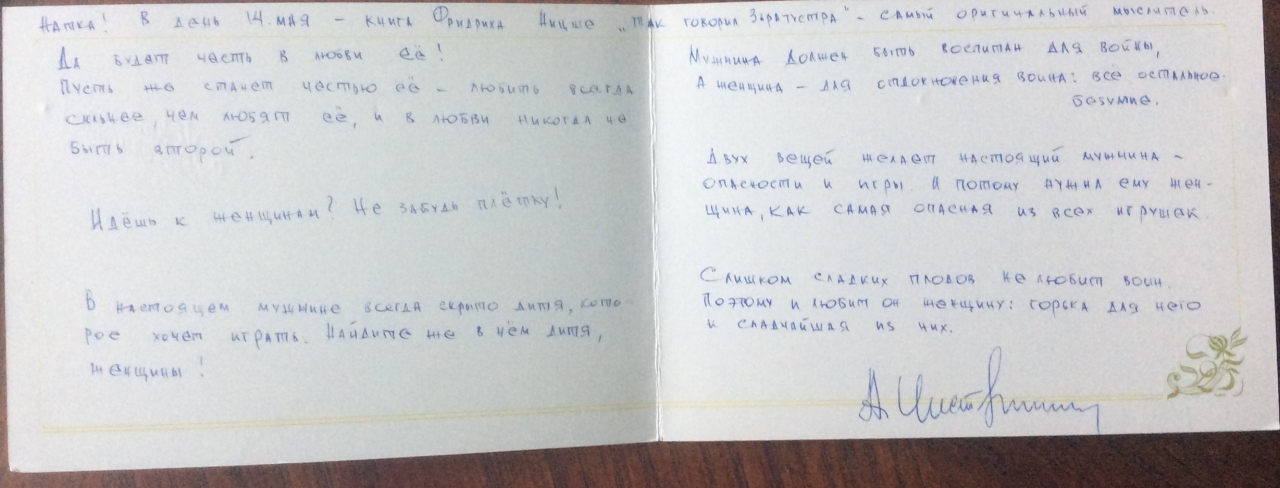 Натка! В день 14 мая - книга Фридриха Ницше „Так говорил Заратустра" - самый оригинальный мыслитель.
Да будет честь в любви её!
Пусть же станет честью её - любить всегда
сильнее, чем любят её, и в любви никогда не
быть второй.
Идёшь к женщинам? Не забудь плётку!
В настоящем мужчине всегда скрыто дитя, кото-
рое хочет играть. Найдите же в нём дитя,
женщины!
Мужчина должен быть воспитан для войны,
А женщина - для отдохновения воина: всё остальное-
безумие.
Двух вещей желает настоящий мужчина -
опасности и игры. И потому нужна ему жен-
щина, как самая опасная из всех игрушек.
Слишком сладких плодов не любит воин.
Поэтому и любит он женщину: горька для него
и сладчайшая из них.